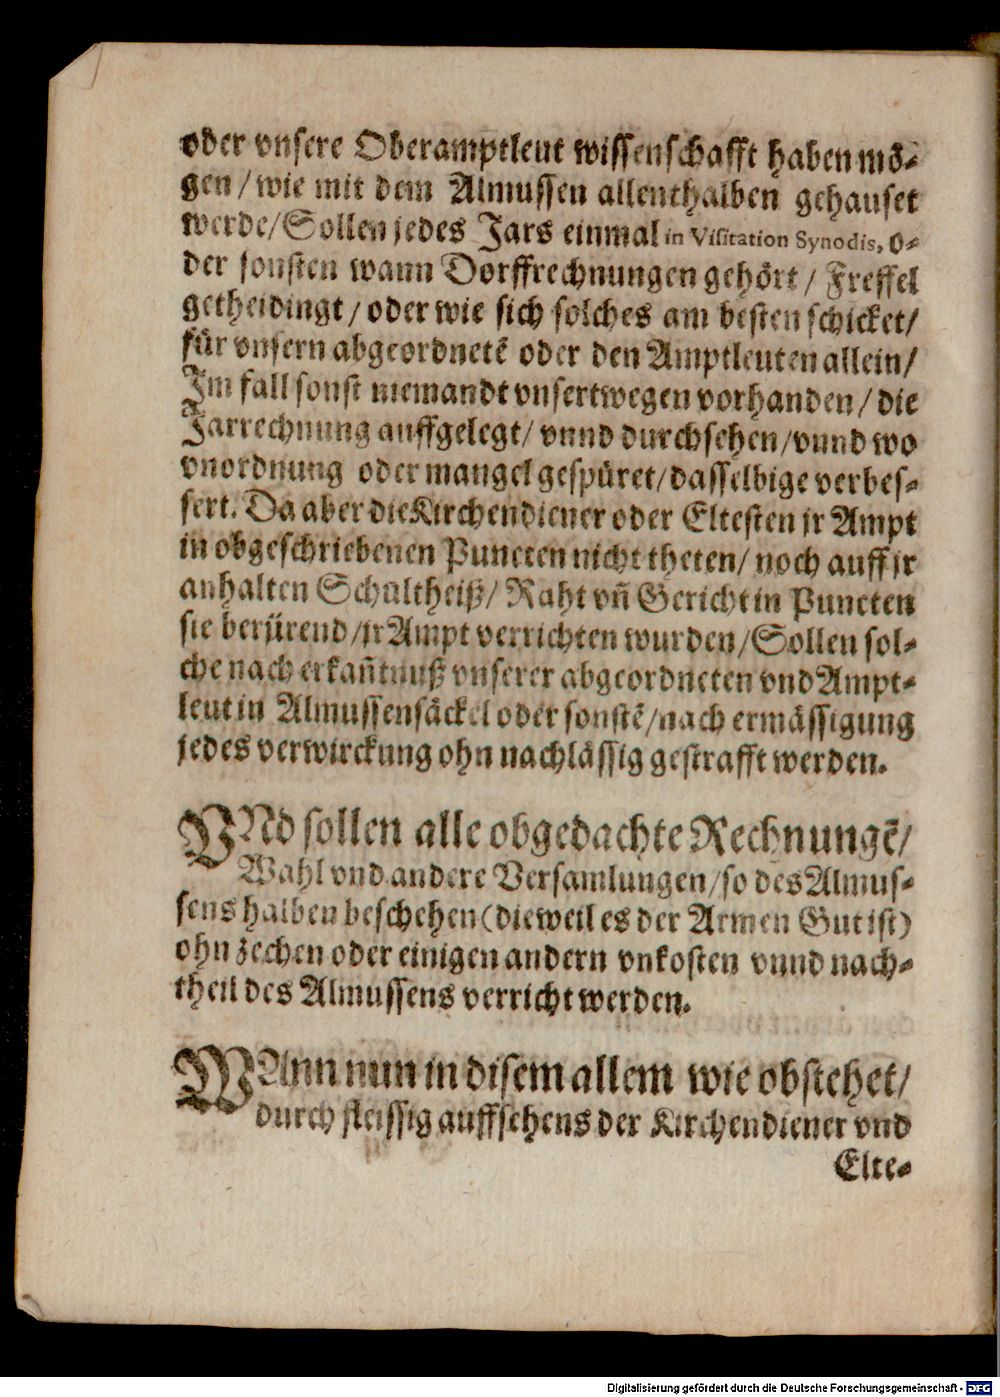 oder vnsere Oberamptleut wissenschafft haben mö-
gen / wie mit dem Almussen allenthalben gehauset
werde/ Sollen jedes Jars einmal in Visitation Synodis, o-
der sonsten wann Dorffrechnungen gehört / Freffel
getheidingt / oder wie sich solches am besten schicket/
für vnsern abgeordnetẽ oder den Amptleuten allein/
Im fall sonst niemandt vnsertwegen vorhanden / die
Jarrechnung auffgelegt/ vnnd durchsehen/vnnd wo
vnordnung oder mangel gespüret/dasselbige verbes-
sert. Da aber die Kirchendiener oder Eltesten jr Ampt
in obgeschriebenen Puncten nicht theten/ noch auff jr
anhalten Schultheiß/ Raht vñ Gericht in Puncten
sie berürend/jr Ampt verrichten wurden/Sollen sol-
che nach erkañtnuß vnserer abgeordneten vnd Ampt-
leut in Almussensäckel oder sonstẽ/nach ermässigung
jedes verwirckung ohn nachlässig gestrafft werden.
VNd sollen alle obgedachte Rechnungẽ/
Wahl vnd andere Versamlungen/so des Almus-
sens halben beschehen (dieweil es der Armen Gut ist)
ohn zechen oder einigen andern vnkosten vnnd nach-
theil des Almussens verricht werden.
WAnn nun in disem allem wie obstehet/
durch fleissig auffsehens der Kirchendiener vnd
Elte-
Digitalisierung gefördert durch die Deutsche Forschungsgemeinschaft - DFG